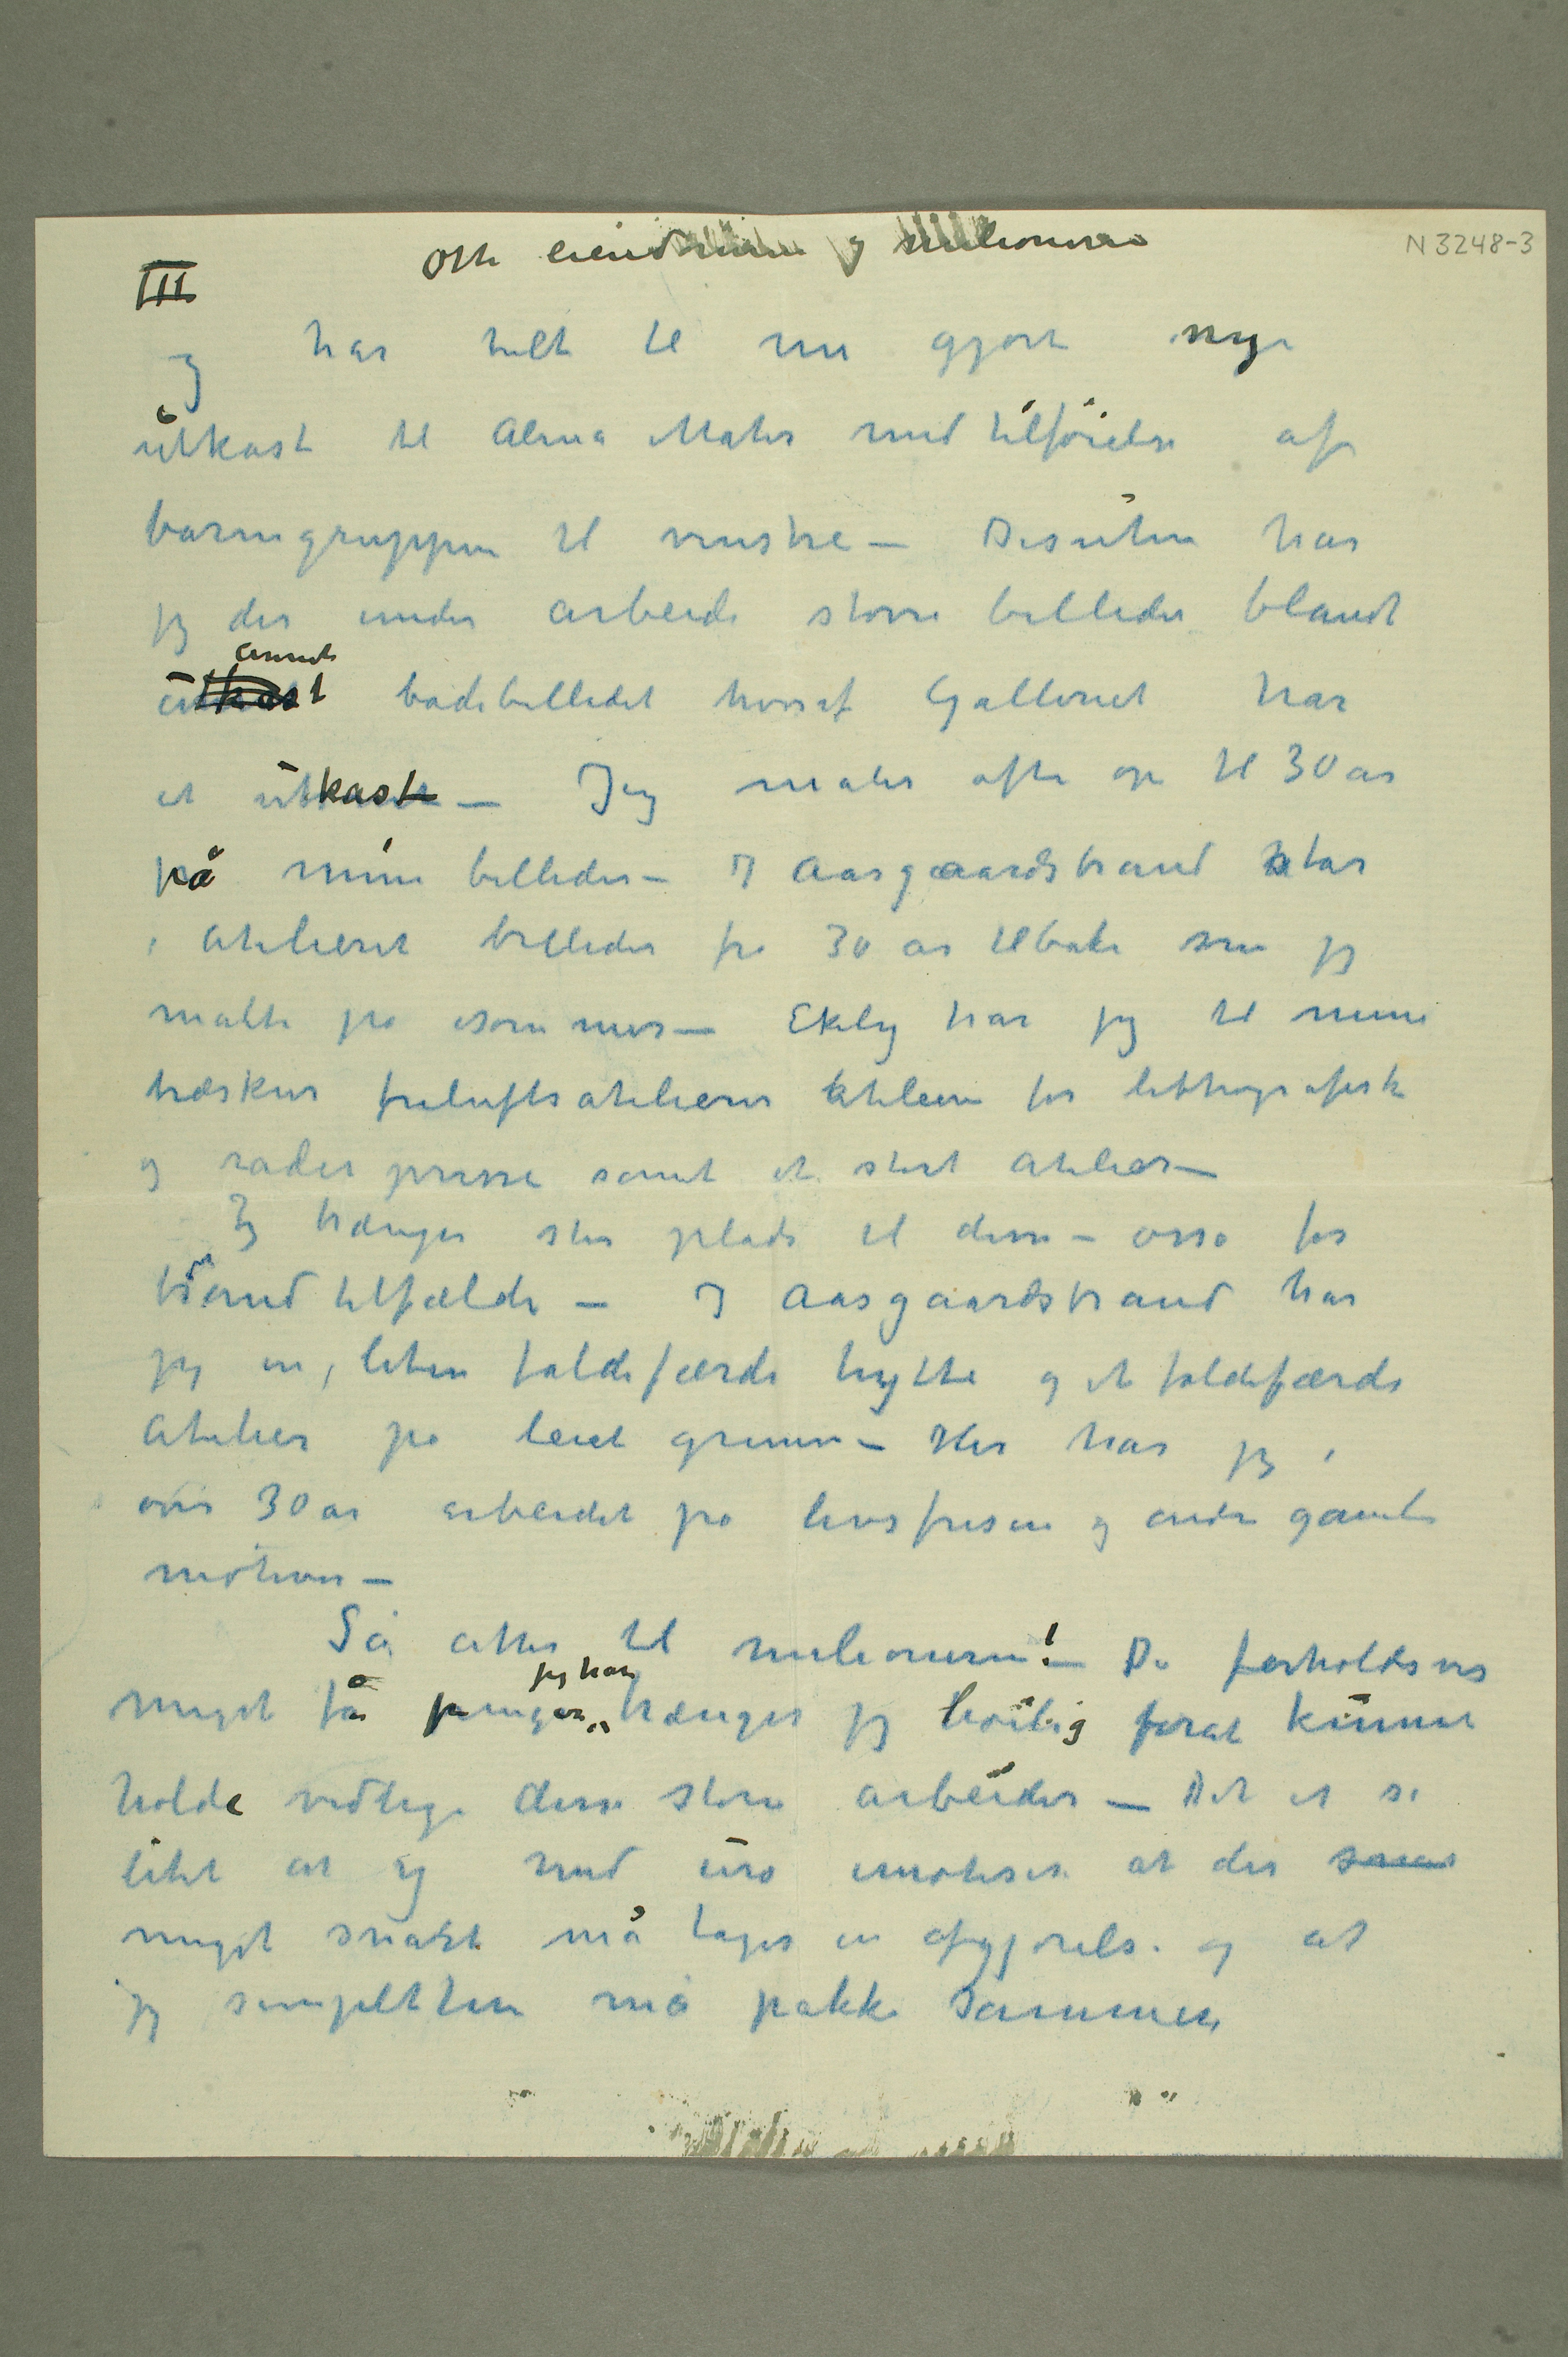 N 3248-3
Otte eiendomme og millionerne
III
og har helt til nu gjort nye
utkast til Alma Mater med tilføielse af
barnegruppen til venstre – Desuten har
jeg der under arbeide større billeder blandt
annet
badebilledet hvoraf Galleriet har
et utkast – Jeg maler ofte op til 30 år
på mine billeder – I Aasgaardstrand står
i atelieret billeder fra 30 år tilbake som jeg
malte på isommer – Ekely har jeg til mine
træskur friluftsatelierer Atelier for lithografisk
og raderpresse samt et stort atelier –
Jeg trænger stor plads til disse – også for
brandtilfælde – I Aasgaardstrand har
jeg en liten faldefærdi hytte og et faldefærdi
Atelier på leiet grunn – Her har jeg i
over 30 år arbeidet på livsfrisen og andre gamle
motiver –
Så atter til millionerne! – De forholdsvis
jeg har
meget få penger trænger jeg høilig forat kunne
holde vedlige disse store arbeider – Det er så
litet at jeg med uro imøteser at der snart
meget snart må tages en afgjørelse og at
jeg simpelthen må pakke sammen